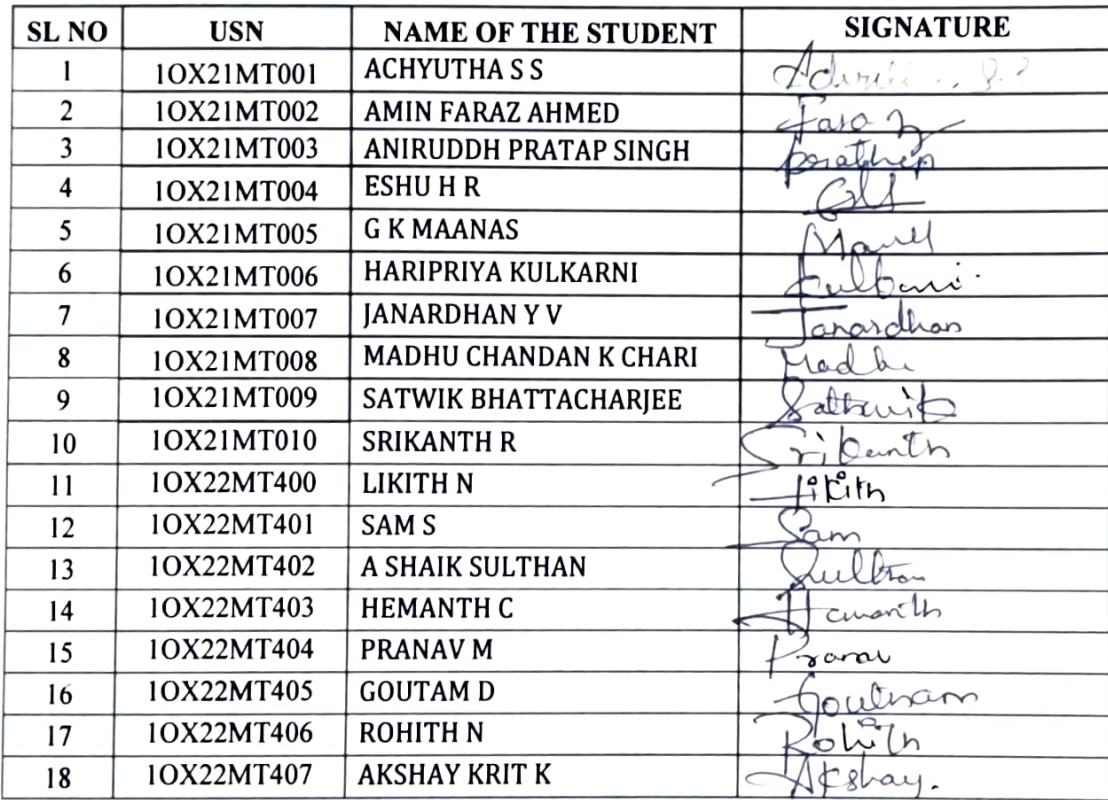 SL NO USN NAME OF THE STUDENT SIGNATURE
1 1OX21MT001 ACHYUTHA S S
2 1OX21MT002 AMIN FARAZ AHMED
3 1OX21MT003 ANIRUDDH PRATAP SINGH
4 1OX21MT004 ESHU H R
5 1OX21MT005 G K MAANAS
6 1OX21MT006 HARIPRIYA KULKARNI
7 1OX21MT007 JANARDHAN Y V Janardhan
8 1OX21MT008 MADHU CHANDAN K CHARI Madhu
9 1OX21MT009 SATWIK BHATTACHARJEE
10 1OX21MT010 SRIKANTH R Srikanth
11 1OX22MT400 LIKITH N Likith
12 1OX22MT401 SAM S Sam
13 1OX22MT402 A SHAIK SULTHAN
14 1OX22MT403 HEMANTH C
15 1OX22MT404 PRANAV M Pranav
16 1OX22MT405 GOUTAM D Goutham
17 1OX22MT406 ROHITH N Rohith
18 1OX22MT407 AKSHAY KRIT K Akshay.